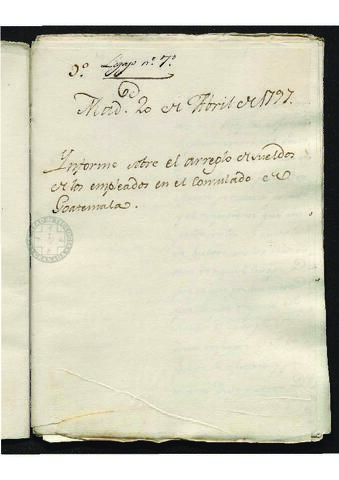 9.º Legajo n.º 7.º
Mad. 20 de Abril de 1797.
Informe sobre el arreglo de sueldos
de los empleados en el Consulado de
Goatemala.